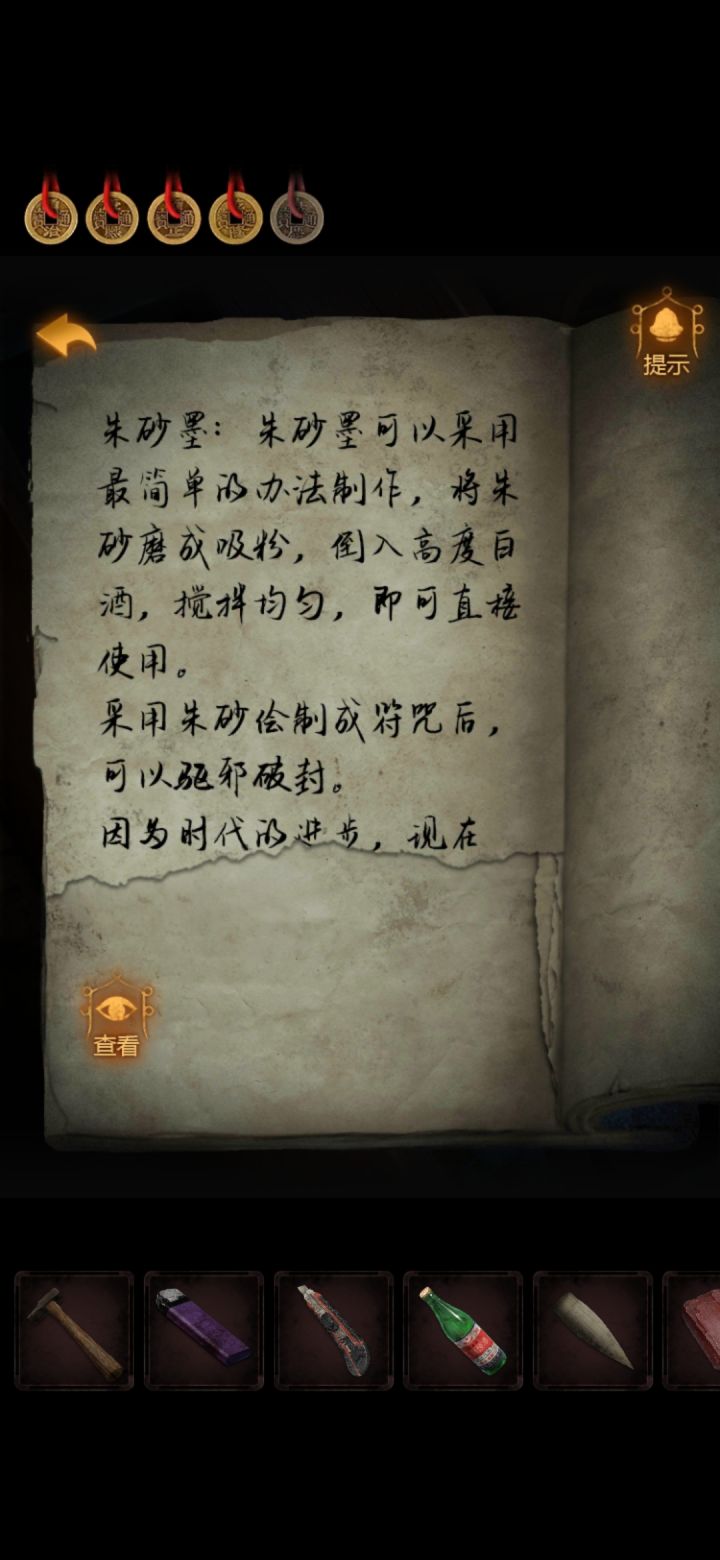 提示
朱砂墨：朱砂墨可以采用
最简单的办法制作，将朱
砂磨成吸粉，倒入高度白
酒，搅拌均匀，即可直接
使用。
采用朱砂绘制成符咒后，
可以驱邪破封。
因为时代的进步，现在
查看